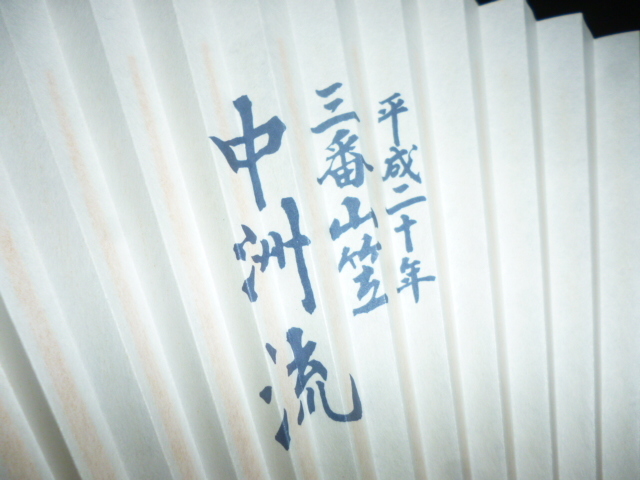 平成二十年
三番山笠
中洲流